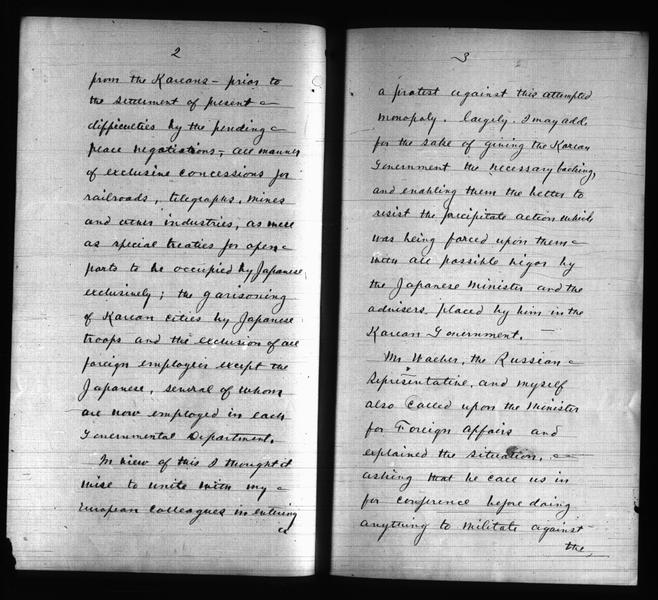 2
from the Koreans – prior to
the settlement of present
difficulties by the pending
peace negotiations, all manner
of exclusive concessions for
railroads, telegraphs, mines
and other industries, as well
as special treaties for open
ports to be occupied by Japanese
exclusively; the garisoning
of Korean cities by Japanese
troops and the exclusion of all
foreign employeies except the
Japanese, several of whom
are now employed in each
Governmental Department.
In view of this I thought it
wise to unite with my
European colleagues in entering
a
3
a protest against this attempted
monopoly. largely, I may add,
for the sake of giving the Korean
Government the necessary backing,
and enabling them the better to
resist the precipitate action which
was being forced upon them
with all possible vigor by
the Japanese Minister and the
advisers placed by him in the
Korean Government. –
Mr Waeber, the Russian
Representative, and myself
also called upon the Minister
for Foreign Affairs and
explained the situation,
asking that he call us in
for conference before doing
anything to militate against
the